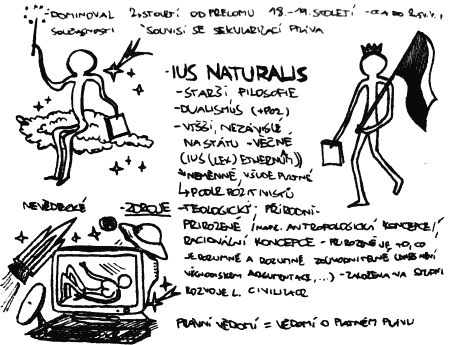 -DOMINOVAL 2. STOLETÍ OD PŘELOMU 18.-19. STOLETÍ - DO 2. SV. V.
SOUČASNOSTI SOUVISÍ SE SEKULARIZACÍ PRÁVA
·IUS NATURALIS
-STARŠÍ FILOSOFIE
-DUALISMUS (+POZ)
-VYŠŠÍ, NEZÁVISLÉ
NA STÁTU -VĚČNÉ
(IUS (LEX) ETHERNUM)
NEMĚNNÉ, VŠUDE PLATNÉ
↳ PODLE POZITIVISTŮ
NEVĚDECKÉ -ZDROJE -TEOLOGICKÝ PŘÍRODNÍ-
PŘIROZENÉ (NAPŘ. ANTROPOLOGICKÁ KONCEPCE)/
RACIONÁLNÍ KONCEPCE - PŘIROZENÉ JE TO, CO
JE ROZUMNÉ A ROZUMNĚ ZDŮVODNITELNÉ
ARGUMENTACE, ...) -ZALOŽENA NA STUDIU
ROZVOJE L. CIVILIZACE
PRÁVNÍ VĚDOMÍ = VĚDOMÍ O PLATNÉM PRÁVU